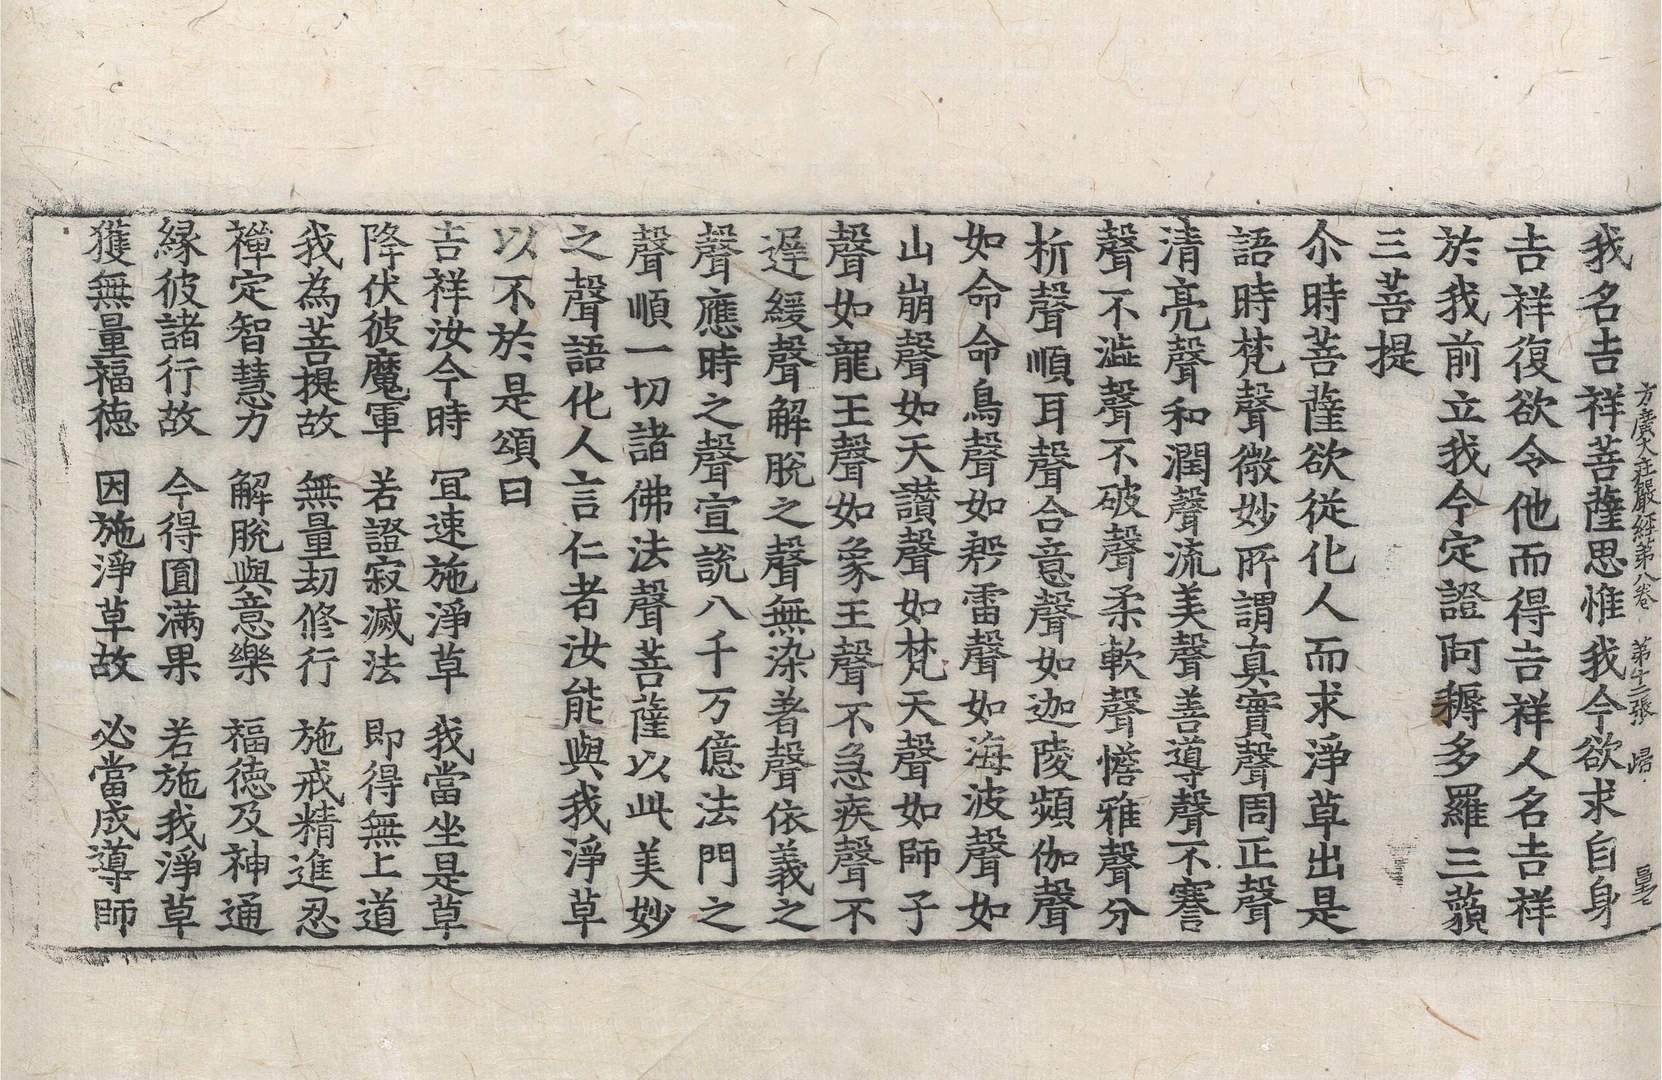 方廣大莊嚴經第八卷 第十二張 㱕
我名吉祥菩薩思惟我今欲求自身
吉祥復欲令他而得吉祥人名吉祥
於我前立我今定證阿耨多羅三藐
三菩提
尒時菩薩欲從化人而求淨草出是
語時梵聲微妙所謂真實聲周正聲
清亮聲和潤聲流美聲善導聲不謇
聲不澁聲不破聲柔軟聲憺雅聲分
析聲順耳聲合意聲如迦陵頻伽聲
如命命鳥聲如殷雷聲如海波聲如
山崩聲如天讚聲如梵天聲如師子
聲如龍王聲如象王聲不急疾聲不
遲緩聲解脫之聲無染著聲依義之
聲應時之聲宣說八千万億法門之
聲順一切諸佛法聲菩薩以此美妙
之聲語化人言仁者汝能與我淨草
以不於是頌曰
吉祥汝今時 冝速施淨草 我當坐是草
降伏彼魔軍 若證寂滅法 即得無上道
我為菩提故 無量劫修行 施戒精進忍
禪定智慧力 解脫與意樂 福德及神通
緣彼諸行故 今得圎滿果 若施我淨草
獲無量福德 因施淨草故 必當成導師